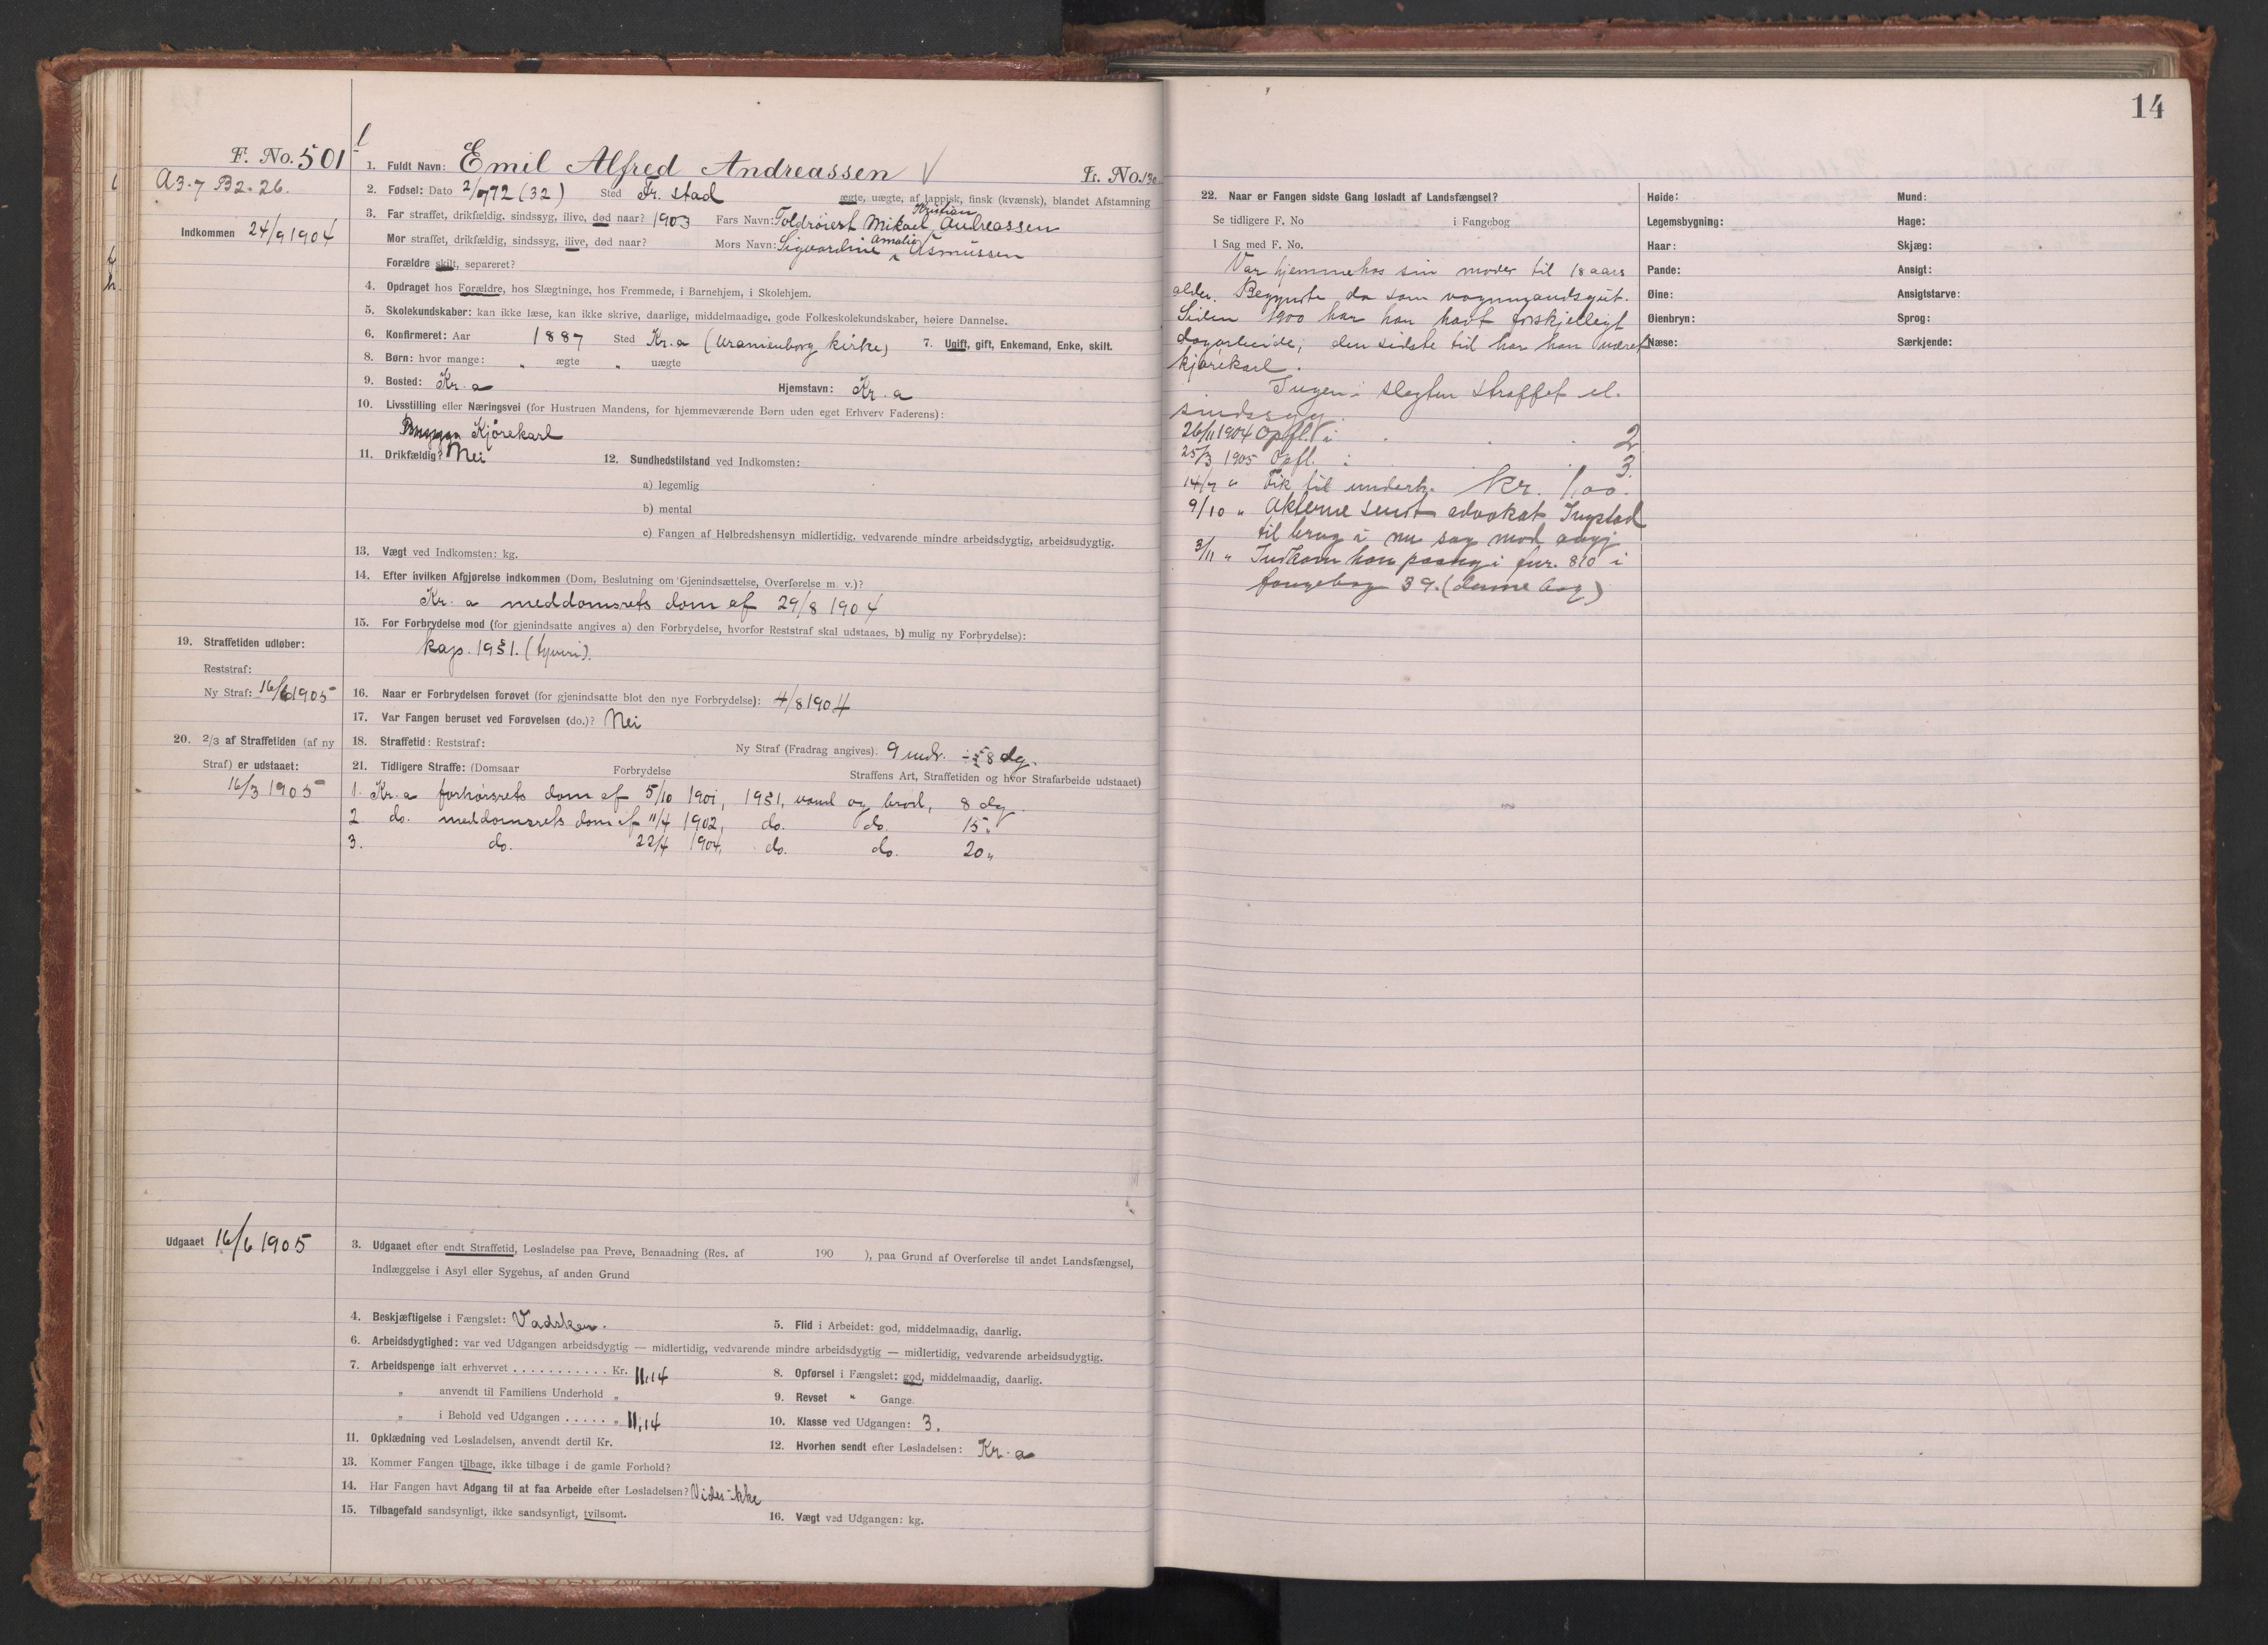 14
F. No. 501
A3.7 B2.26.
Indkommen 24/9 1904
1. Fuldt Navn: Emil Alfred Andreassen
Fr. No. 130
2. Fødsel: Dato 2/9 72 (32) Sted Fr. stad ægte, uægte, af lappisk, finsk (kvænsk), blandet Afstamning
3. Far straffet, drikfældig, sindssyg, ilive, død naar? 1903 Fars Navn: Toldrörert Mikael Kristian Andreassen
Mor straffet, drikfældig, sindssyg, ilive, død naar? Mors Navn: Sigvardine Amalie Asmussen
Forældre skilt, separeret?
4. Opdraget hos Forældre, hos Slægtninge, hos Fremmede, i Barnehjem, i Skolehjem.
5. Skolekundskaber: kan ikke læse, kan ikke skrive, daarlige, middelmaadige, gode Folkeskolekundskaber, høiere Dannelse.
6. Konfirmeret: Aar 1887 Sted Kr.a (Uranienborg kirke) 7. Ugift, gift, Enkemand, Enke, skilt.
8. Børn: hvor mange: " ægte " uægte
9. Bosted: Kr.a Hjemstavn: Kr.a
10. Livsstilling eller Næringsvei (for Hustruen Mandens, for hjemmeværende Børn uden eget Erhverv Faderens):
Kjörekarl
11. Drikfældig? Nei 12. Sundhedstilstand ved Indkomsten:
a) legemlig
b) mental
c) Fangen af Helbredshensyn midlertidig, vedvarende mindre arbeidsdygtig, arbeidsudygtig.
13. Vægt ved Indkomsten: kg.
14. Efter hvilken Afgjørelse indkommen (Dom, Beslutning om Gjenindsættelse, Overførelse m. v.)?
Kr.a meddomsrets dom af 29/8 1904
15. For Forbrydelse mod (for gjenindsatte angives a) den Forbrydelse, hvorfor Reststraf skal udstaaes, b) mulig ny Forbrydelse):
Kap. 19 § 1. (tyveri).
19. Straffetiden udløber:
Reststraf:
Ny Straf: 16/6 1905
16. Naar er Forbrydelsen forøvet (for gjenindsatte blot den nye Forbrydelse): 4/8 1904
17. Var Fangen beruset ved Forøvelsen (do.)? Nei
20. 2/3 af Straffetiden (af ny
Straf) er udstaaet:
16/3 1905
18. Straffetid: Reststraf: Ny Straf (Fradrag angives): 9 mdr. ÷ 8 dg.
21. Tidligere Straffe: (Domsaar Forbrydelse Straffens Art, Straffetiden og hvor Strafarbeide udstaaet)
1. Kr.a forhörsrets dom af 5/10 1901, 19 § 1, vand og bröd, 8 dg.
2 do. meddomsrets dom af 11/4 1902, do. do. 15 "
3. do. 22/4 1904, do. do. 20 "
Udgaaet 16/6 1905
3. Udgaaet efter endt Straffetid, Løsladelse paa Prøve, Benaadning (Res. af 190 ), paa Grund af Overførelse til andet Landsfængsel,
Indlæggelse i Asyl eller Sygehus, af anden Grund
4. Beskjæftigelse i Fængslet: Vadsken. 5. Flid i Arbeidet: god, middelmaadig, daarlig.
6. Arbeidsdygtighed: var ved Udgangen arbeidsdygtig — midlertidig, vedvarende mindre arbeidsdygtig — midlertidig, vedvarende arbeidsudygtig.
7. Arbeidspenge ialt erhvervet . . . . . . . . . . . Kr. 11,14 8. Opførsel i Fængslet: god, middelmaadig, daarlig.
" anvendt til Familiens Underhold " 9. Revset " Gange.
" i Behold ved Udgangen . . . . . " 11,14 10. Klasse ved Udgangen: 3.
11. Opklædning ved Løsladelsen, anvendt dertil Kr. 12. Hvorhen sendt efter Løsladelsen: Kr.a
13. Kommer Fangen tilbage, ikke tilbage i de gamle Forhold?
14. Har Fangen havt Adgang til at faa Arbeide efter Løsladelsen? Vides ikke
15. Tilbagefald sandsynligt, ikke sandsynligt, tvilsomt. 16. Vægt ved Udgangen: kg.
22. Naar er Fangen sidste Gang løsladt af Landsfængsel?
Se tidligere F. No i Fangebog
I Sag med F. No.
Var hjemme hos sin moder til 18 aars
alder. Begyndte da som vognmandsgut.
Siden 1900 har han havt forskjelligt
dagarbeide; den sidste tid har han været
kjörekarl.
Ingen i slegten straffet el.
sindssyg.
26/11 1904 Opfl. i . . . 2
25/3 1905 Opfl. i . . 3.
14/7 " Fik til underh. Kr. 1,00.
9/10 " Akterne sendt advokat Ingstad
til brug i ny sag mod angj.
3/11 " Indkom han paany i fnr. 810 i
fangebog 39. (denne bog)
Høide: Mund:
Legemsbygning: Hage:
Haar: Skjæg:
Pande: Ansigt:
Øine: Ansigtstarve:
Øienbryn: Sprog:
Næse: Særkjende: